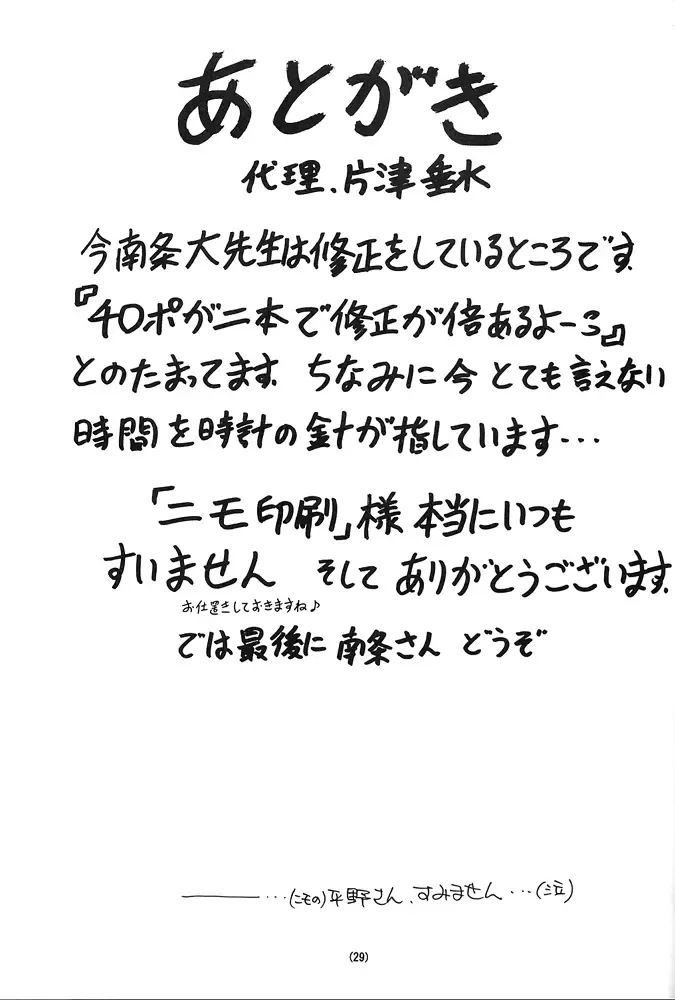 あとがき
代理、片津垂水
今南条大先生は修正をしているところです。
『40ポが二本で修正が倍あるよーう』
とのたまってます。ちなみに今とても言えない
時間を時計の針が指しています…
「ニモ印刷」様本当にいつも
すいません そして ありがとうございます。
お仕置きしておきますね♪
では最後に南条さん どうぞ
―――…(ニモの)平野さん、すみません…(泣)
(29)